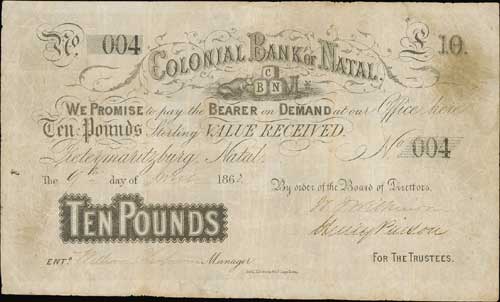 No. 004 £ 10.
COLONIAL BANK OF NATAL.
C
B N
WE PROMISE to pay the BEARER on DEMAND at our Office here
Ten Pounds Sterling VALUE RECEIVED.
Pietermaritzburg, Natal. No 004
The 9th day of 1862. By order of the Board of Directors.
TEN POUNDS
ENTD. Manager FOR THE TRUSTEES.